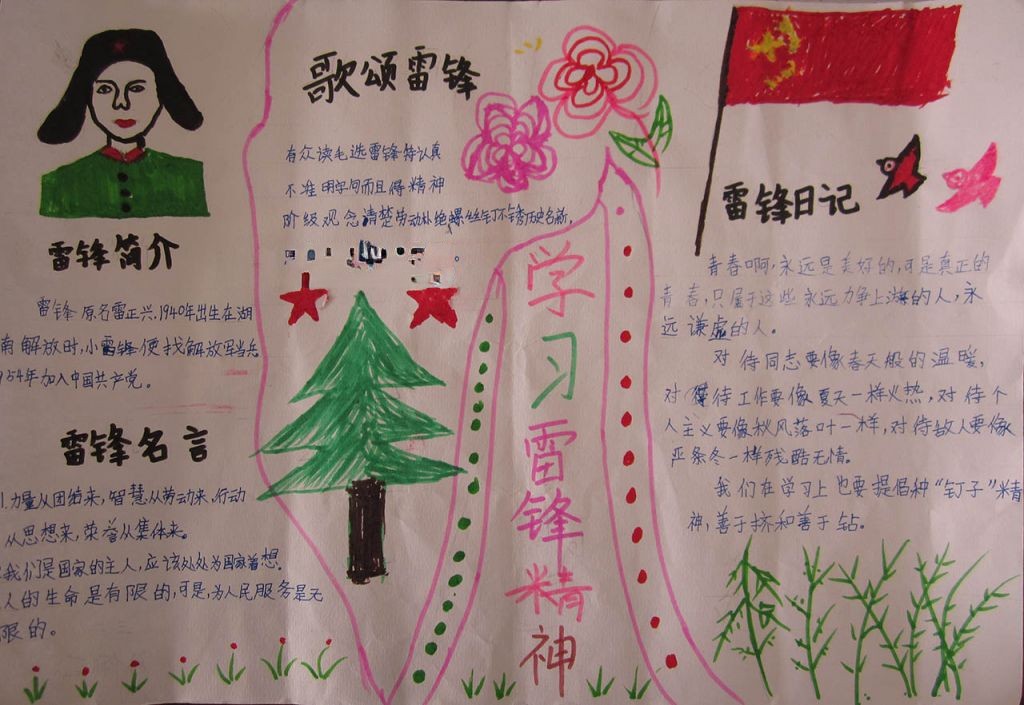 雷锋简介
雷锋原名雷正兴,1940年出生在湖
南解放时,小雷锋便找解放军当兵
1954年加入中国共产党。
雷锋名言
1.力量从团结来,智慧从劳动来,行动
从思想来,荣誉从集体来。
我们是国家的主人,应该处处为国家着想.
人的生命是有限的,可是,为人民服务是无
限的。
歌颂雷锋
有众读毛选雷锋特认真
不准用学问而且得精神
阶级观念清楚劳动
螺丝钉不锈历史名前,
学习雷锋精神
雷锋日记
青春啊,永远是美好的,可是真正的
青春,只属于这些永远力争上游的人,永
远谦虚的人。
对待同志要像春天般的温暖,
对待工作要像夏天一样火热,对待个
人主义要像秋风落叶一样,对待敌人要像
严条冬一样残酷无情。
我们在学习上也要提倡种“钉子”精
神,善于挤和善于钻。